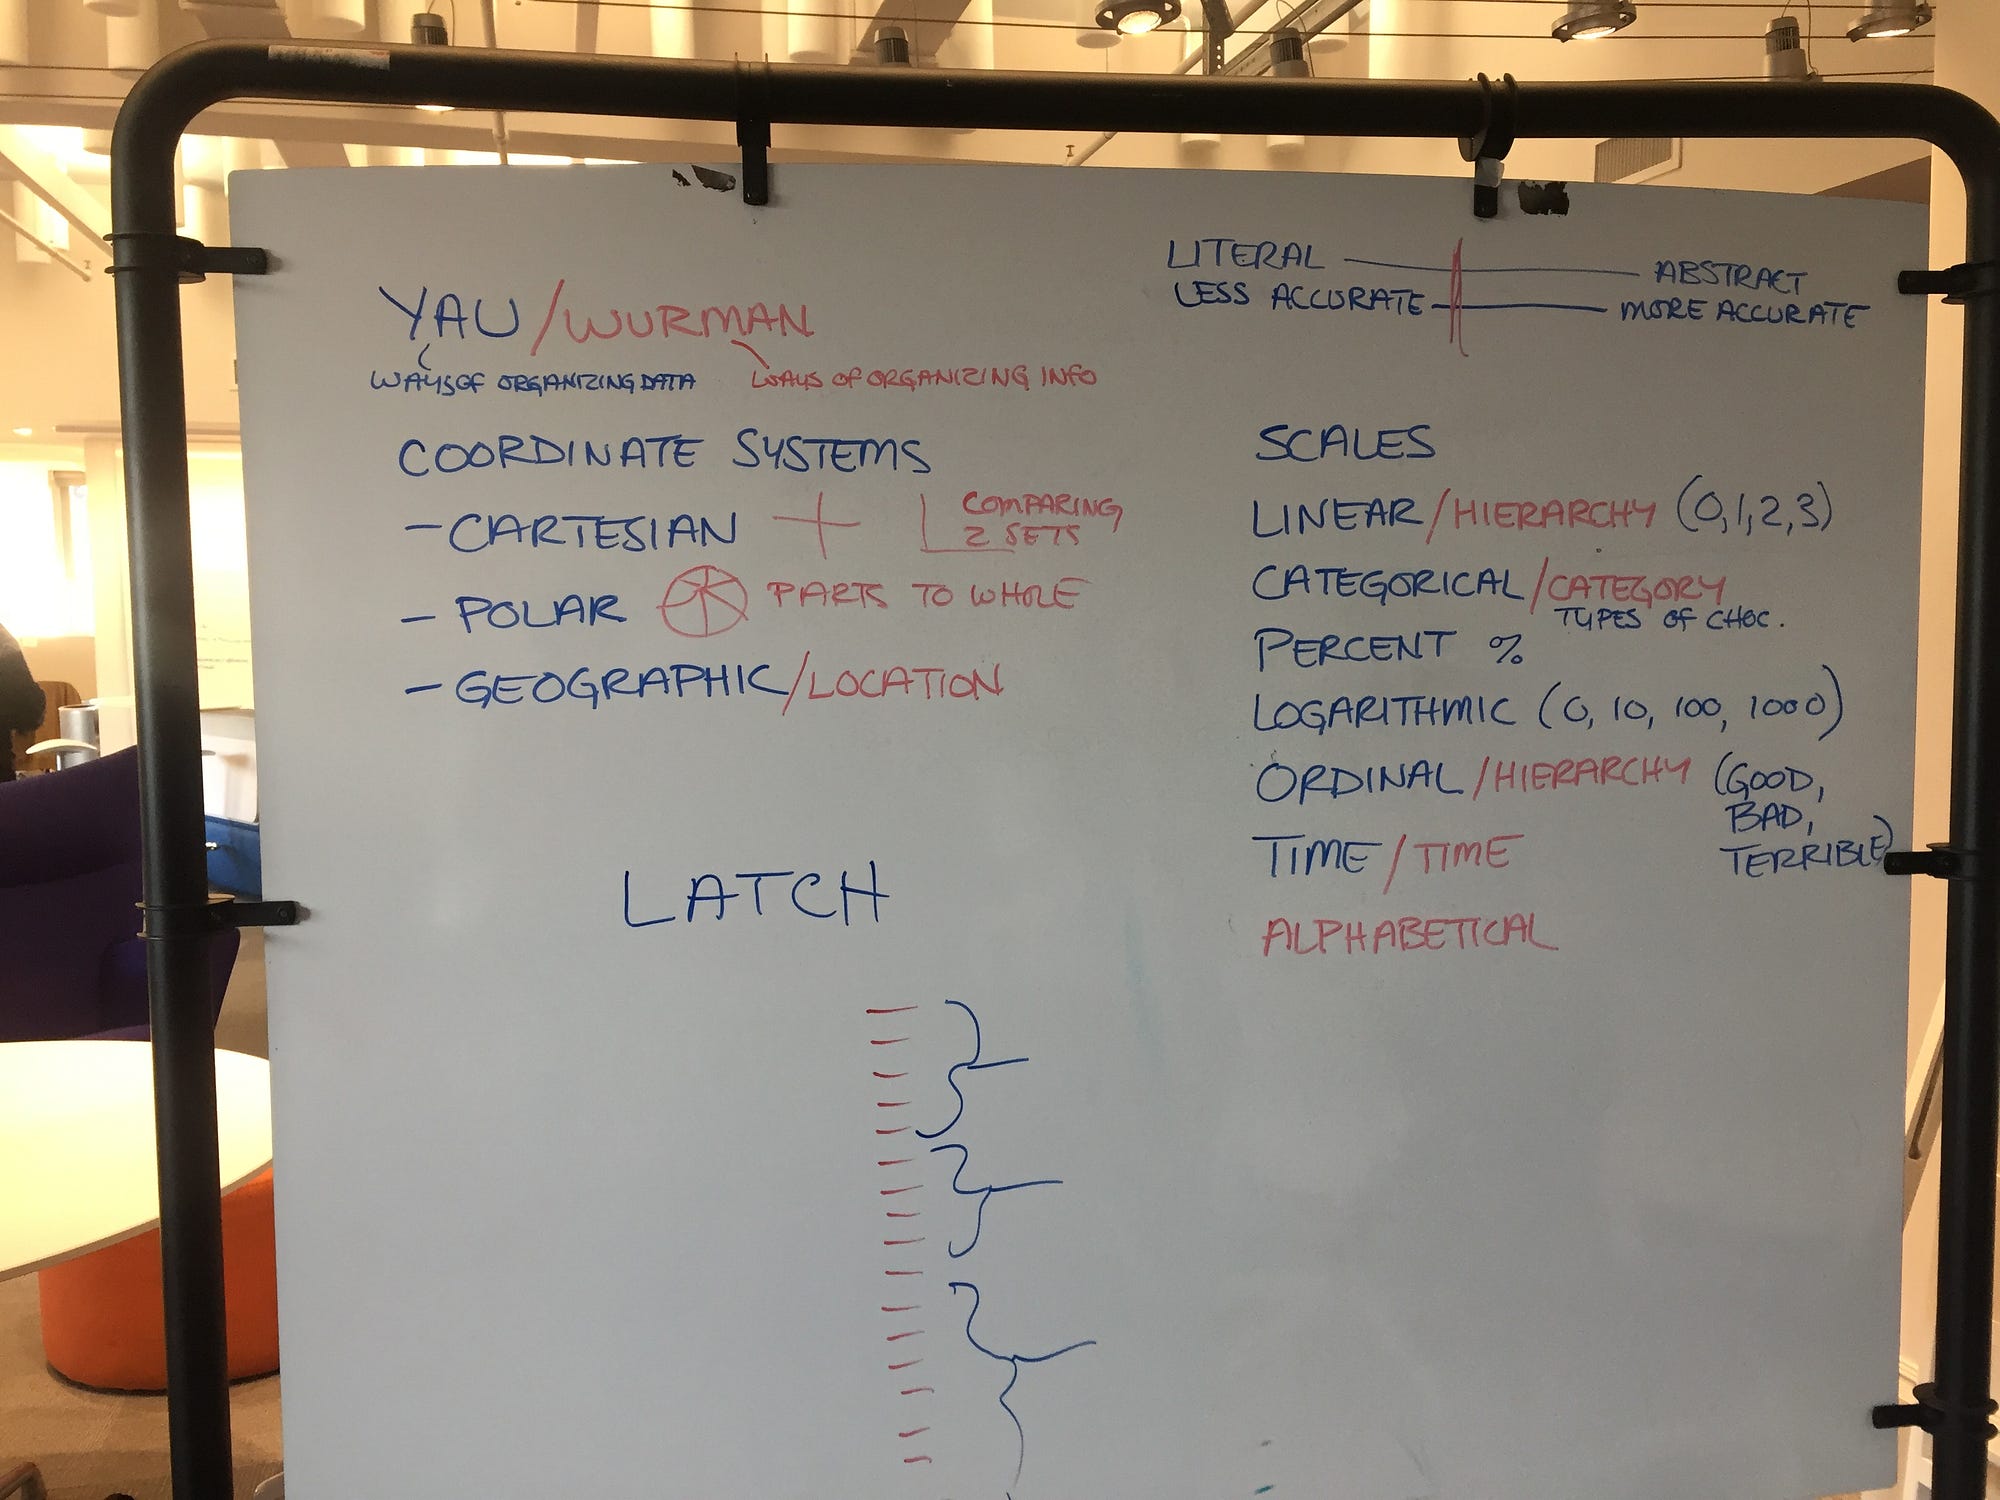 YAU/WURMAN
WAYS OF ORGANIZING DATA
WAYS OF ORGANIZING INFO
LITERAL — ABSTRACT
LESS ACCURATE — MORE ACCURATE
COORDINATE SYSTEMS
- CARTESIAN
COMPARING
2 SETS
- POLAR
PARTS TO WHOLE
- GEOGRAPHIC/LOCATION
LATCH
SCALES
LINEAR/HIERARCHY (0,1,2,3)
CATEGORICAL/CATEGORY
TYPES OF CHOC.
PERCENT %
LOGARITHMIC (0, 10, 100, 1000)
ORDINAL/HIERARCHY (GOOD,
BAD,
TERRIBLE)
TIME/TIME
ALPHABETICAL